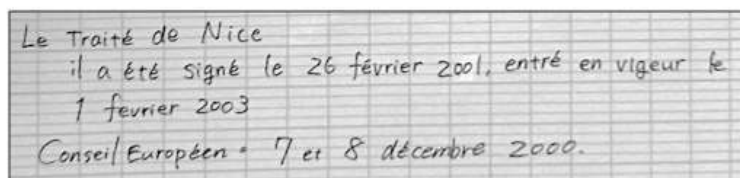 Le Traité de Nice
il a été signé le 26 février 2001, entré en vigeur le
1 fevrier 2003
Conseil Européen : 7 et 8 décembre 2000.